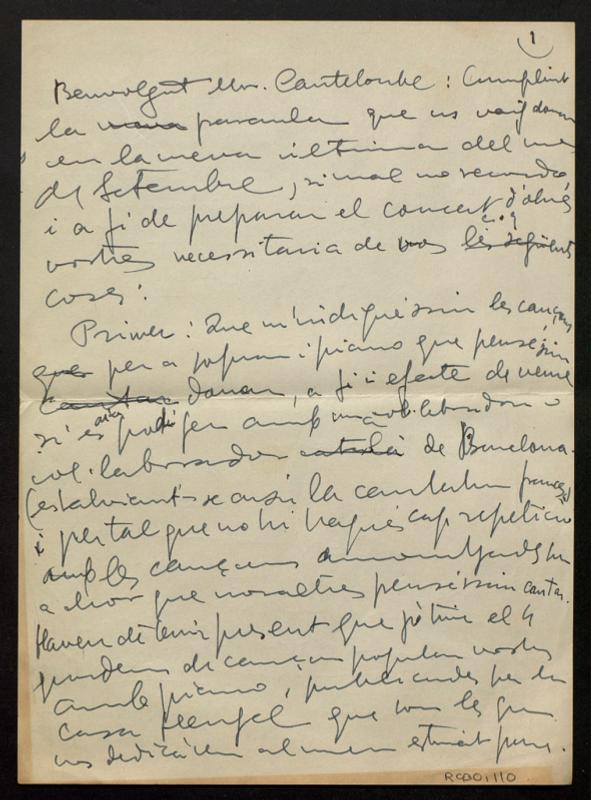 1
Benvolgut Mr. Canteloube : Cumplint
la nova paraula que us vaig donar
en la meva última del mes
de Setembre, si mal no recordo,
i a fi de preparar el concert d'obres
vostres necessitaria de vos les següents
coses :
Primer : Que m'indiquéssin les cançons
que per a sopran i piano que penséssin
cantar donar, a fi i efecte de veure
si es podia fer amb una col·laboradora o
col·laborador català de Barcelona.
(estalviant-se així la cantatriu francesa)
i per tal que no hi hagués cap repetició
amb les cançons
a chor que nosaltres penséssim cantar.
Haveu de tenir present que jo tinc el 4
quadern de cançons populars vostres
amb piano, publicades per la
casa Heugel que son les que
vos dedicàreu al meu estimat pare.
RCOO,110